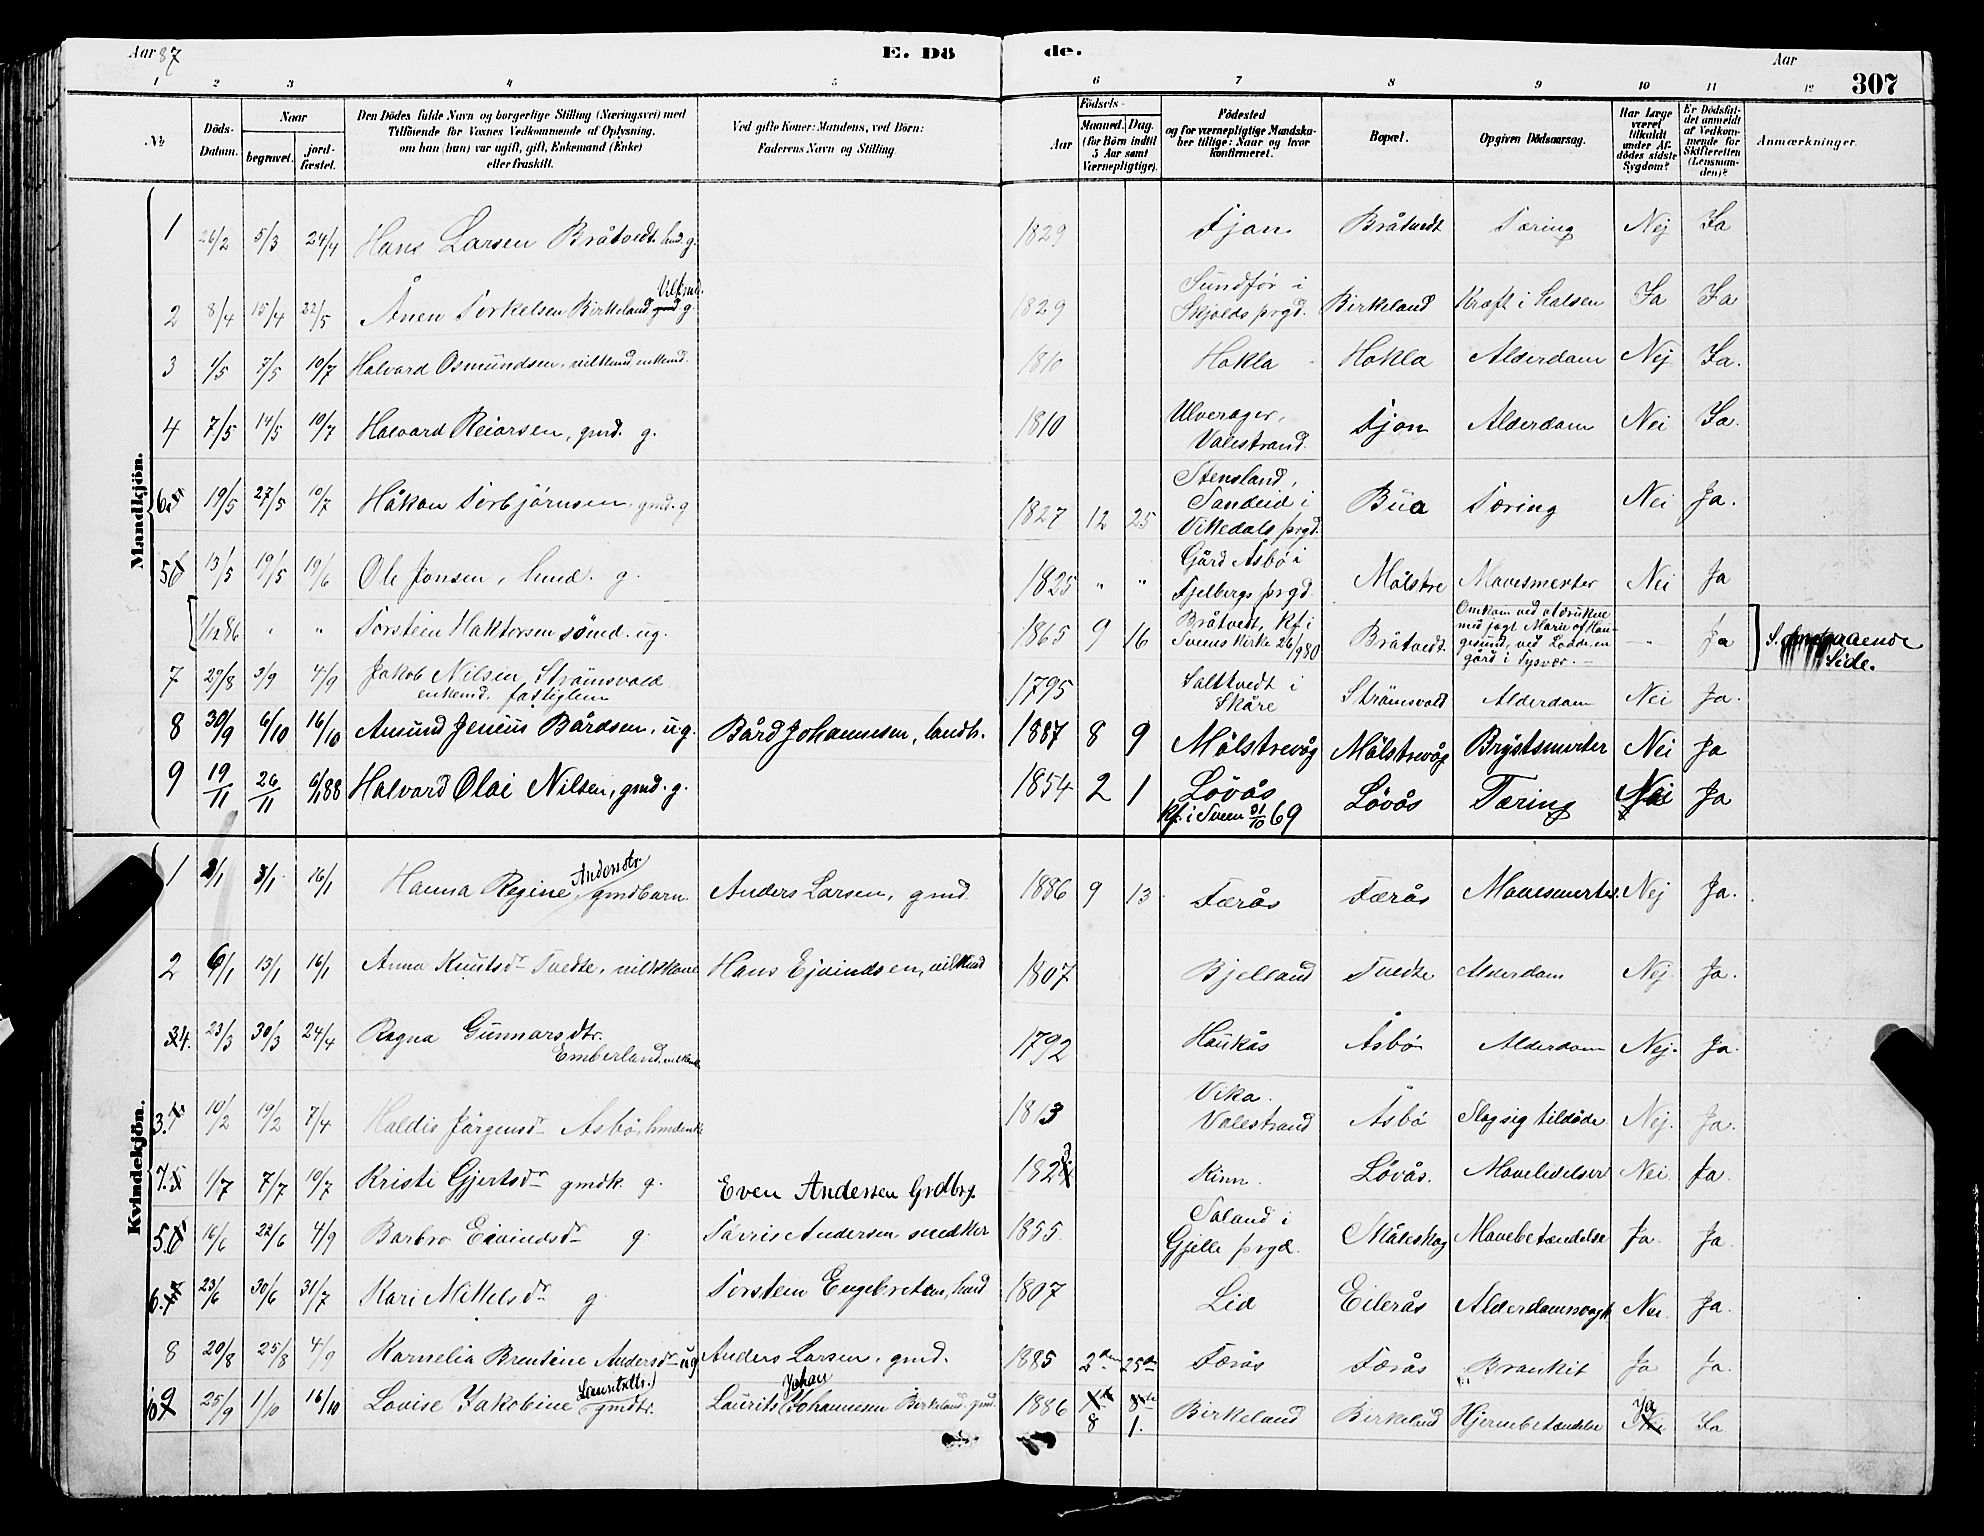 Aar 87 E. Dö de. Aar 307
1 2 3 4 5 6 7 8 9 10 11 12
No Döds-Datum. Naar begravet. jord-fæstet. Den Dödes fulde Navn og borgerlige Stilling (Næringsvei) med Tilföiende for Voxnes Vedkommende af Oplysning, om han (hun) var ugift, gift, Enkemand (Enke) eller fraskilt. Ved gifte Koner: Mandens, ved Börn: Faderens Navn og Stilling Aar Födsels- Maaned. Dag. (for Börn indtil 5 Aar samt Værnepligtige). Födested og for værnepligtige Mandskaber tillige: Naar og hvor konfirmeret. Bopæl. Opgiven Dödsaarsag. Har Læge været tilkaldt under Afdödes sidste Sygdom? Er Dödsfaldet anmeldt af Vedkommende for Skifteretten (Lensmanden)? Anmærkninger.
Mandkjön.
1 26/2 5/3 24/4 Hans Larsen Bråtvedt. hmd. g. 1829 Tjon Bråtvedt Tæring Nej Ja
2 8/4 15/4 22/5 Ånen Torkelsen Birkeland g. 1829 Sundför i Skjolds prgd. Birkeland Kræft i Halsen Ja Ja
3 1/5 7/5 10/7 Halvard Osmundsen, enkemd. 1810 Hokla Hokla Alderdam Nej Ja.
4 7/5 14/5 10/7 Halvard Reiarsen, gmd. g. 1810 Ulverager, Valestrand. Tjon Alderdam Nei Ja.
6. 19/5 27/5 10/7 Håkon Torbjörnsen, gmd. g 1827 12 25 Stensland, Sandeid i Vikedals prgd. Bua Tæring Nei Ja.
5 13/5 19/5 19/6 Ole Jonsen, hmd. g. 1825 " " Gård Åsbö i Fjelbergs prgd. Målstre Mavesmerter Nei Ja
1/12 86 " " Torstein Haktorsen sömd. ug. 1865 9 16 Bråtvedt, kf i Sveens Kirke 26/9 80 Bråtvedt. Omkom ved at drukne med jagt Marie af Haugesund, ved Lodde, en gård i Tysvær. — - Ja S. Side.
7 29/8 3/9 4/9 Jakob Nilsen Strömsvold enkemd. fattiglem 1795 Saltvedt i Skåre Strömsvold Alderdam Nei Ja.
8 30/9 6/10 16/10 Amund Jenius Bårdsen, ug. Bård Johannesen, landh. 1887 8 9 Målstrevåg Målstrevåg Brystsmerter Nei Ja
9 19/11 26/11 6/1 88 Halvard Olai Nilsen, gmd. g. 1854 2 1 Lövås kf. i Sveen 31/10 69 Lövås Tæring Nei Ja
Kvindekjön.
1 2/1 3/1 16/1 Hanna Regine Andersdtr, gmdbarn. Anders Larsen, gmd. 1886 9 13. Færås Færås Mavesmerter. Nej Ja.
2 6/1 13/1 16/1 Anna Knutsdr Tvedte, vilkkone Hans Ejvindsen, vilkmd 1807 Bjelland Tvedte Alderdam Nej. Ja.
4. 23/3 30/3 24/4 Ragna Gunnarsdtr. Emberland. 1792 Haukås Åsbö Alderdam Nej. Ja.
3. 10/2 19/2 7/4 Haldis Jörgensdr Åsbö, hmdenke 1813 Vika. Valestrand Åsbö Slog sig tildöde Nej. Ja.
7. 1/7 7/7 10/7 Kristi Gjertsdr gmdk. g. Even Andersen Grdbr. 1823 Kinn. Lövås. Mavelidelser Nei Ja.
5. 16/6 22/6 4/9 Barbro Eivindsdr g. Tarris Andersen snedker 1855 Saland i Gjelle prgd. Måleskog Mavebetændelse Ja. Ja.
6. 23/6 30/6 31/7 Kari Mikkelsdr g. Torstein Engebretsen, hmd 1807 Lid Eilerås Alderdomsvagh Nei. Ja.
8 20/8 25/8 4/9 Karnelia Brentine Andersdr ug Anders Larsen, gmd. 1885 2den 25de Færås Færås Bronkit Ja Ja.
9 25/9 1/10 16/10 Lovise Jakobine Lauritsdtr. gmdtr. Laurits Johan Johannesen Birkeland. gmd. 1886 8 1. Birkeland Birkeland Hjernebetændelse Ja Ja